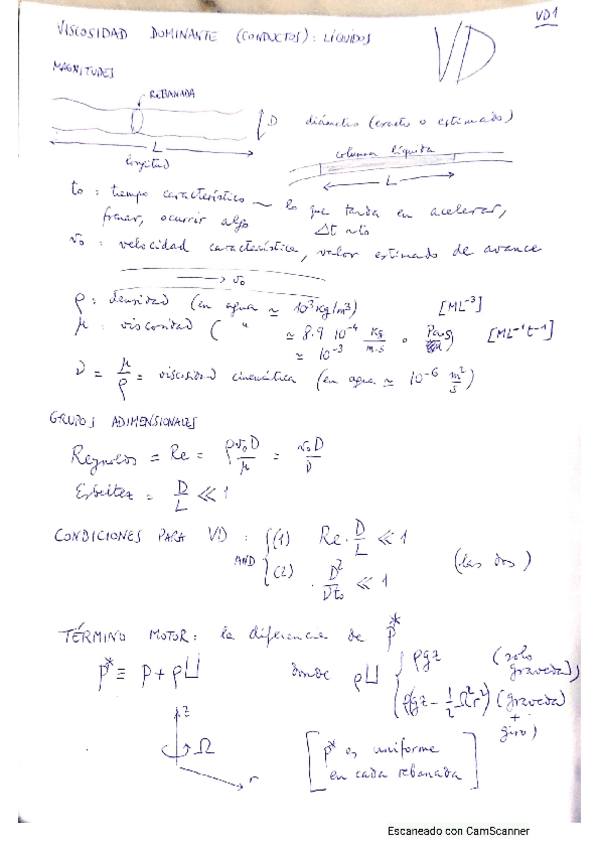 VD1
VISCOSIDAD DOMINANTE (CONDUCTOS): LÍQUIDOS
VD
MAGNITUDES
REBANADA
D diámetro (exacto o estimado)
L
longitud
columna líquida
L
to : tiempo característico ~ lo que tarda en acelerar,
frenar, ocurrir algo Δt ~ to
vo : velocidad característica, valor estimado de avance
→ vo
ρ : densidad (en agua ≃ 10³ kg/m³) [ML⁻³]
μ : viscosidad ( " ≃ 8.9 10⁻⁴ kg/m.s o Pa.s) [ML⁻¹t⁻¹]
≃ 10⁻³
ν = μ/ρ = viscosidad cinemática (en agua ≃ 10⁻⁶ m²/s)
GRUPOS ADIMENSIONALES
Reynolds = Re = ρvoD/μ = voD/ν
Esbeltez = D/L ≪ 1
CONDICIONES PARA VD : (1) Re · D/L ≪ 1
AND (2) · D²/νto ≪ 1 (las dos)
TÉRMINO MOTOR: la diferencia de p*
p* ≡ p + ρU donde ρU { ρgz (solo gravedad),
ρgz - 1/2 Ω²r² (gravedad + giro)
z
Ω
r
[p* es uniforme
en cada rebanada]
Escaneado con CamScanner